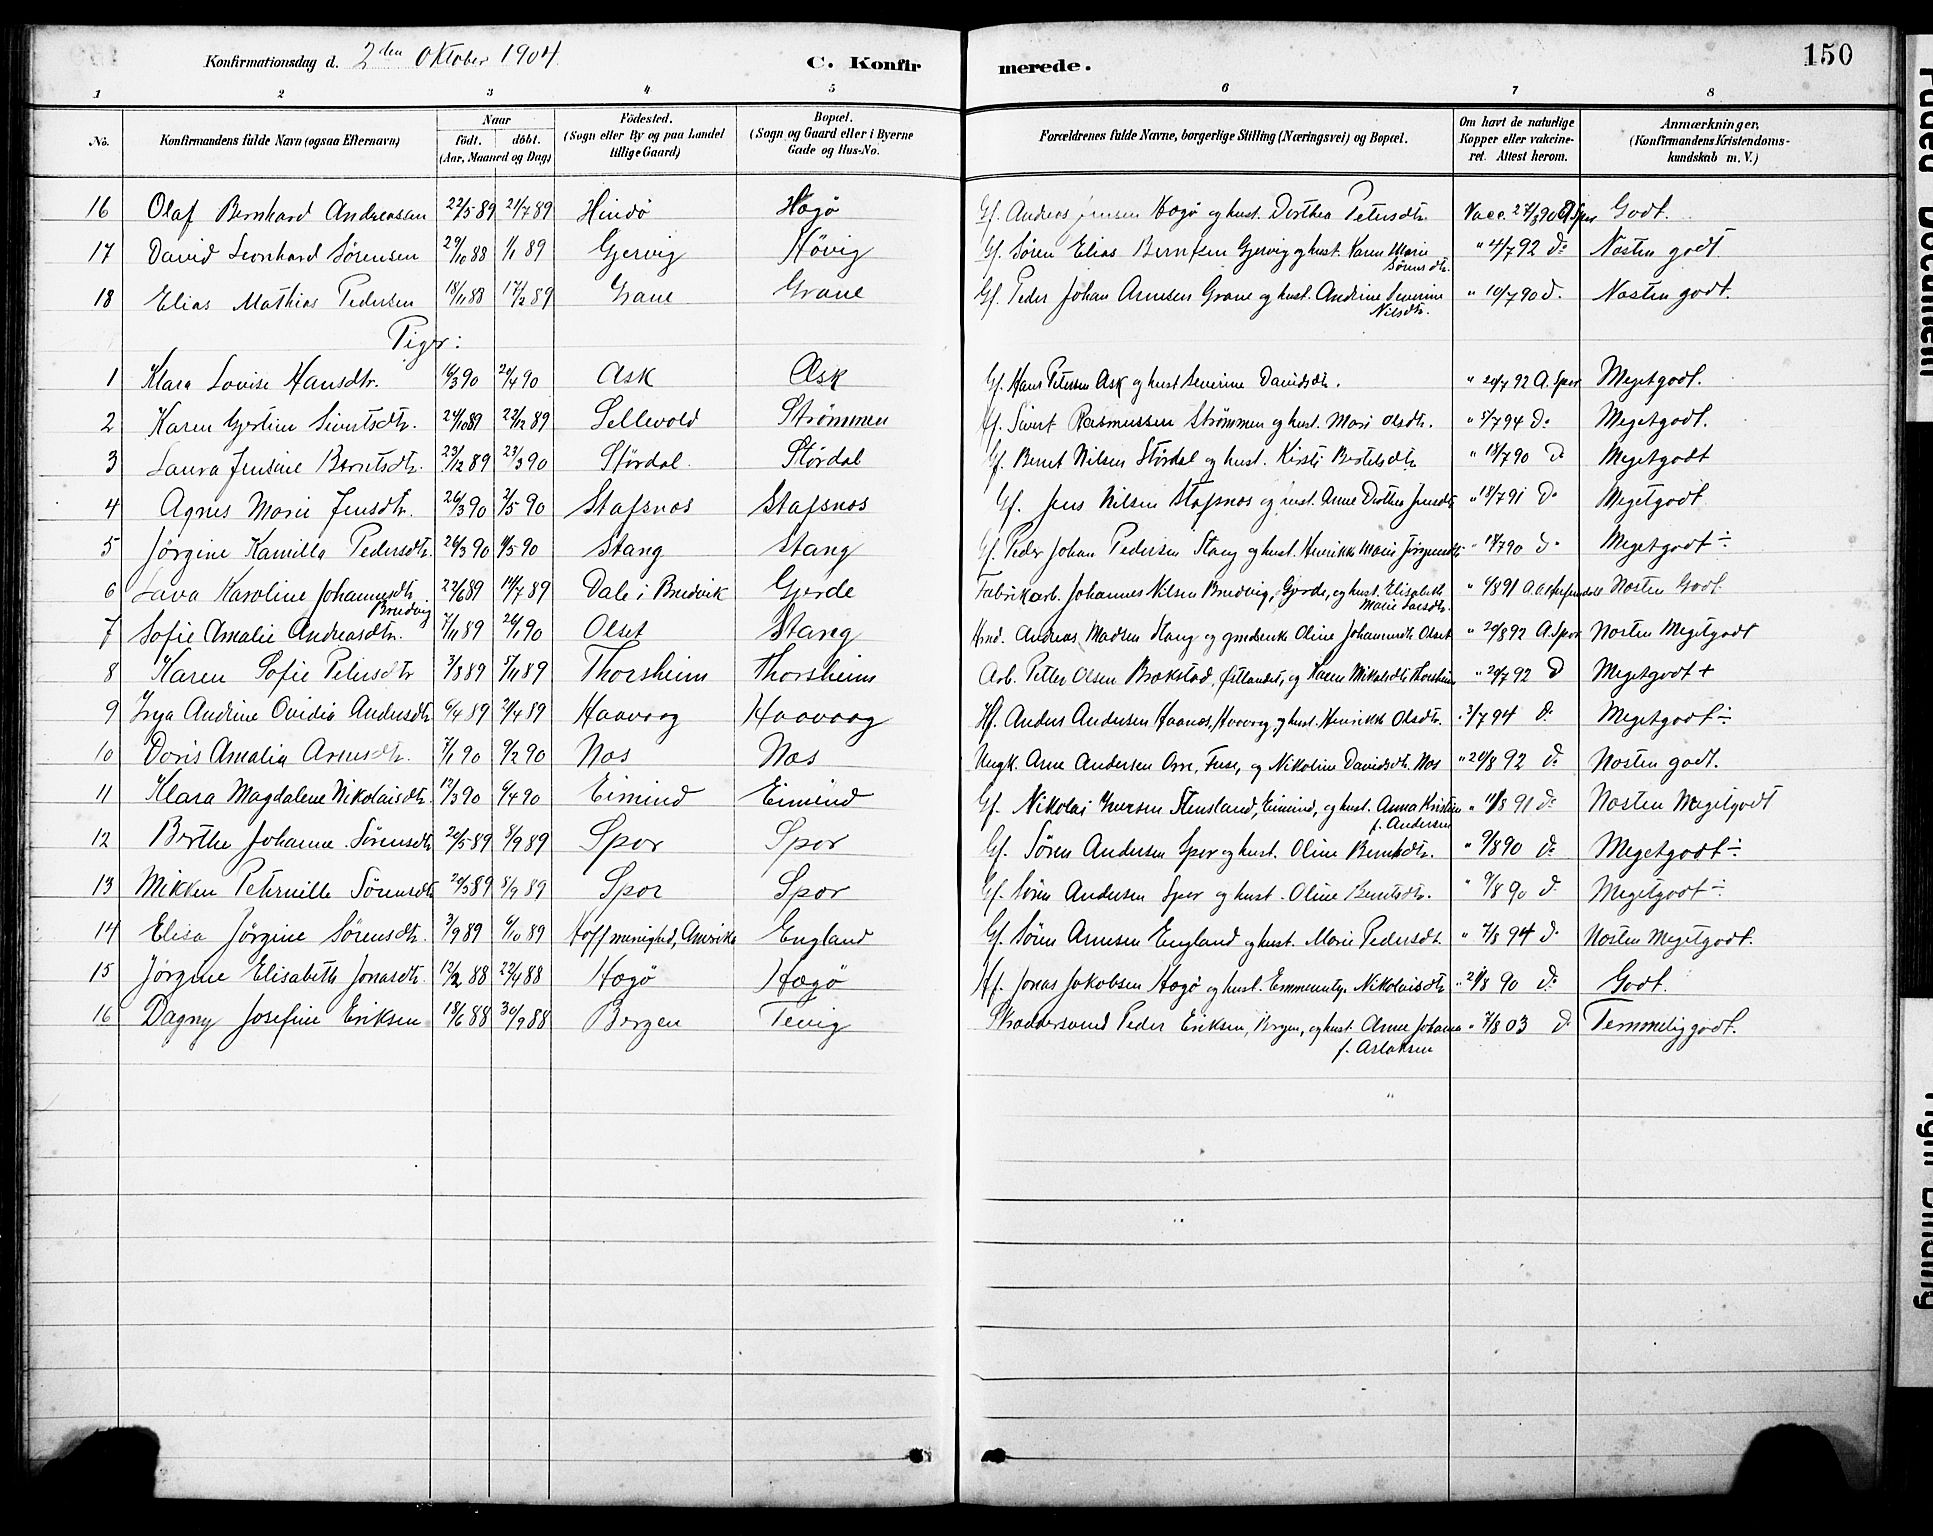 150
Konfirmationsdag d. 2den Oktober 1904
C. Konfirmerede.
1 2 3 4 5 6 7 8
No.
Konfirmandens fulde Navn (ogsaa Efternavn)
Naar
født. døbt.
(Aar, Maaned og Dag)
Fødested.
(Sogn eller By og paa Landet tillige Gaard)
Bopæl.
(Sogn og Gaard eller i Byerne Gade og Hus-No.
Forældrenes fulde Navne, borgerlige Stilling (Næringsvei) og Bopæl.
Om havt de naturlige Kopper eller vakcineret. Attest herom.
Anmærkninger,
(Konfirmandens Kristendomskundskab m. V.)
16 Olaf Bernhard Andreassen 22/5 89 21/7 89 Hindø Hagø Gf. Andreas Jensen Hagø og hust. Dorthea Petersdtr. Vacc. 90 A. Spor Godt.
17 David Leonhard Sørensen 29/10 88 1/1 89 Gjervig Høvig Gf. Søren Elias Berntsen Gjervig og hust. Karen Marie Sørensdtr. " 4/7 92 do Næsten godt
18 Elias Mathias Pedersen 18/11 88 17/2 89 Grane Grane Gf. Peder Johan Arnesen Grane og hust. Andrine Severine Nilsdtr. " 10/7 90 d. Næsten godt.
Piger:
1 Klara Lovise Hansdtr. 16/3 90 20/4 90 Ask Ask Gf. Hans Petersen Ask og hust Severine Davidsdtr. " 20/7 92 A. Spor Megetgodt.
2 Karen Gjertine Sivertsdtr. 24/10 89 22/12 89 Sellevold Strømmen Sivert Rasmussen Strømmen og hust. Mari Olsdtr. " 5/7 94 do Megetgodt.
3 Laura Jensine Berntsdtr. 23/12 89 23/3 90 Størdal Størdal Gf. Bernt Nilsen Størdal og hust. Kirsti Bertelsdtr " 18/7 90 do Megetgodt
4 Agnes Marie Jensdtr. 26/3 90 2/5 90 Stafsnes Stafsnes Gf. Jens Nilsen Stafsnes og hust. Anne Dorthea Jensdtr " 18/7 91 do Megetgodt
5 Jørgine Kamilla Pedersdtr. 26/3 90 4/5 90 Stang Stang Gf. Peder Johan Pedersen Stang og hust. Henrikke Marie Jørgensdtr. " 18/7 90 do Megetgodt ÷
6 Lava Karoline Johannesdtr Bredvig 22/6 89 14/7 89 Dale i Bredvik Gjerde Fabrikarb. Johannes Nilsen Bredvig, Gjerde, og hust. Elisabeth Marie Larsdtr. " 91 Næsten Godt.
7 Sofie Amalie Andreasdtr. 7/11 89 26/1 90 Olset Stang Andreas Madsen Stang og Oline Johannesdtr Olset " 20/8 92 A. Spor Næsten Megetgodt
8 Karen Sofie Petersdtr 3/8 89 5/11 89 Thorsheim Thorsheim Arb. Petter Olsen Brækstad, Østlandet, og Karen Mikalsdtr. Thorsheim " 20/7 92 do Megetgodt +
9 Inga Andrine Ovidia Andersdtr. 6/4 89 21/4 89 Haavaag Haavaag Hf. Anders Andersen Haanes, Haavaag, og hust. Henrikke Olsdtr. " 3/7 94 do Megetgodt ÷
10 Doris Amalia Arnesdtr. 7/1 90 9/2 90 Næs Næs Ungk. Arne Andersen Orre, Fuse, og Nikoline Davidsdtr. Næs " 20/8 92 do Næsten godt.
11 Klara Magdalene Nikolaisdtr. 12/3 90 6/4 90 Eimind Eimind Gf. Nikolai Iversen Stensland, Eimind, og hust. Anna Kristine f. Andersen " 91 do Næsten Megetgodt
12 Berthe Johanne Sørensdtr. 20/5 89 8/9 89 Spor Spor Gf. Søren Andersen Spor og hust. Oline Berntsdtr. " 9/8 90 do Megetgodt ÷
13 Mikken Peternille Sørensdtr 20/5 89 8/9 89 Spor Spor Gf. Søren Andersen Spor og hust. Oline Berntsdtr. " 9/8 90 d. Megetgodt ÷
14 Elisa Jørgine Sørensdtr. 3/9 89 6/10 89 Hoff menighed, Amerika England Gf. Søren Arnesen England og hust. Marie Pedersdtr. " 7/8 94 do Næsten Megetgodt.
15 Jørgine Elisabeth Jonasdtr. 12/2 88 22/4 88 Hagø Hagø Hf. Jonas Jakobsen Hagø og hust. Emmerentze Nikolaisdtr " 21/8 90 do Godt.
16 Dagny Josefine Eriksen 18/6 88 30/9 88 Bergen Tevig Skræddersvend Peder Eriksen, Bergen, og hust. Anne Johanna f. Aslaksen " 7/8 03 do Temmeliggodt.